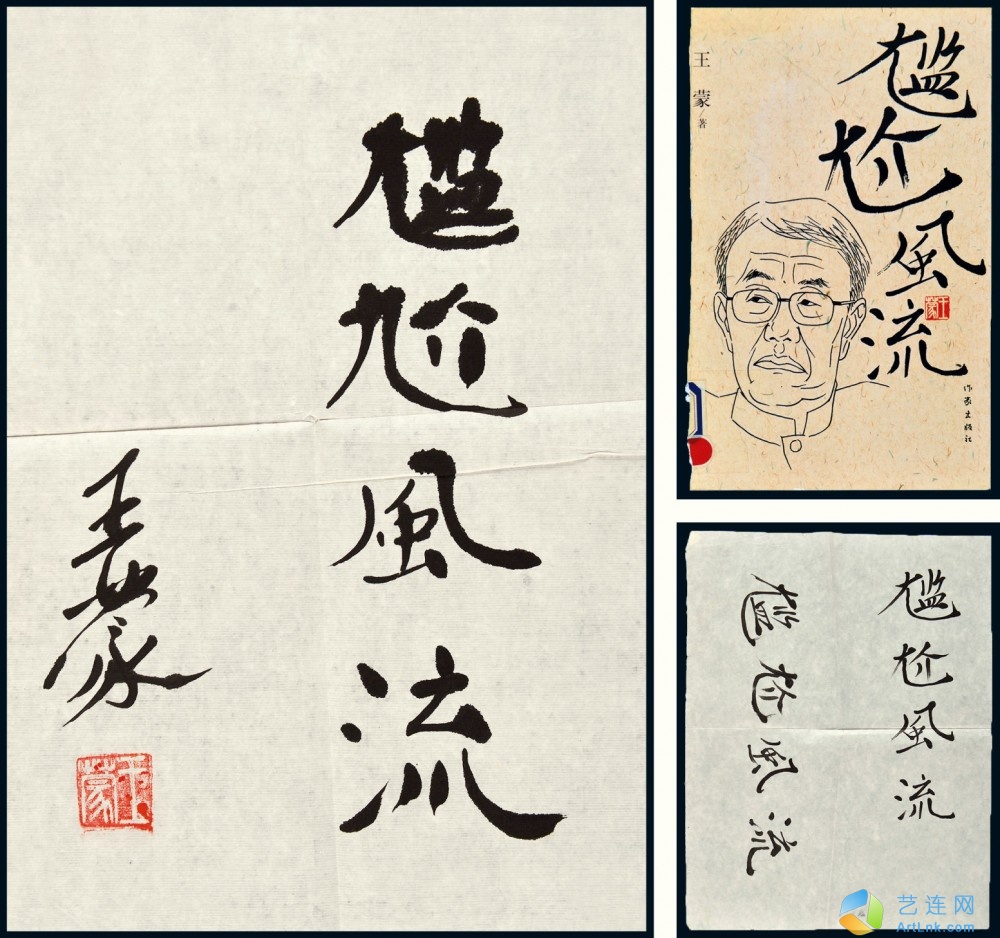 尷尬風流
王蒙
王蒙
王蒙 著
尷尬風流
王蒙
作家出版社
尷尬風流
尷尬風流
艺连网
ArtLnk.com